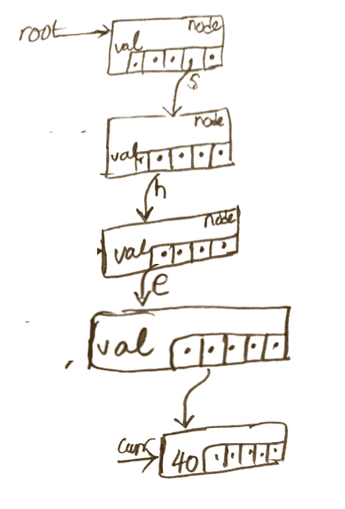 root
node
val
s
node
val
h
node
val
e
val
curr
40